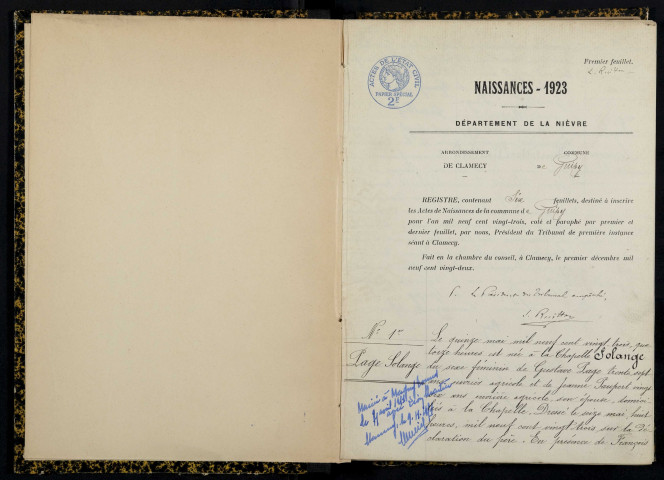 Premier feuillet.
ACTES DE L'ÉTAT CIVIL
PAPIER SPÉCIAL
2F
NAISSANCES - 1923
DÉPARTEMENT DE LA NIÈVRE
ARRONDISSEMENT
COMMUNE
DE CLAMECY
DE Guipy
REGISTRE, contenant Six feuillets, destiné à inscrire
les Actes de Naissances de la commune de Guipy
pour l'an mil neuf cent vingt-trois, coté et paraphé par premier et
dernier feuillet, par nous, Président du Tribunal de première instance
séant à Clamecy.
Fait en la chambre du conseil, à Clamecy, le premier décembre mil
neuf cent vingt-deux.
P. Le Président du Tribunal empêché,
N° 1er
Page Solange
Le quinze mai mil neuf cent vingt trois, qua
torze heures est née à la Chapelle Solange
du sexe féminin de Gustave Page trente sept
ans, ouvrier agricole et de Jeanne
ans ouvrière agricole, son épouse, domici
liés à la Chapelle. Dressé le seize mai, huit
heures, mil neuf cent vingt trois, sur la Dé
claration du père. En présence de François
Mariée à
le avril
avec